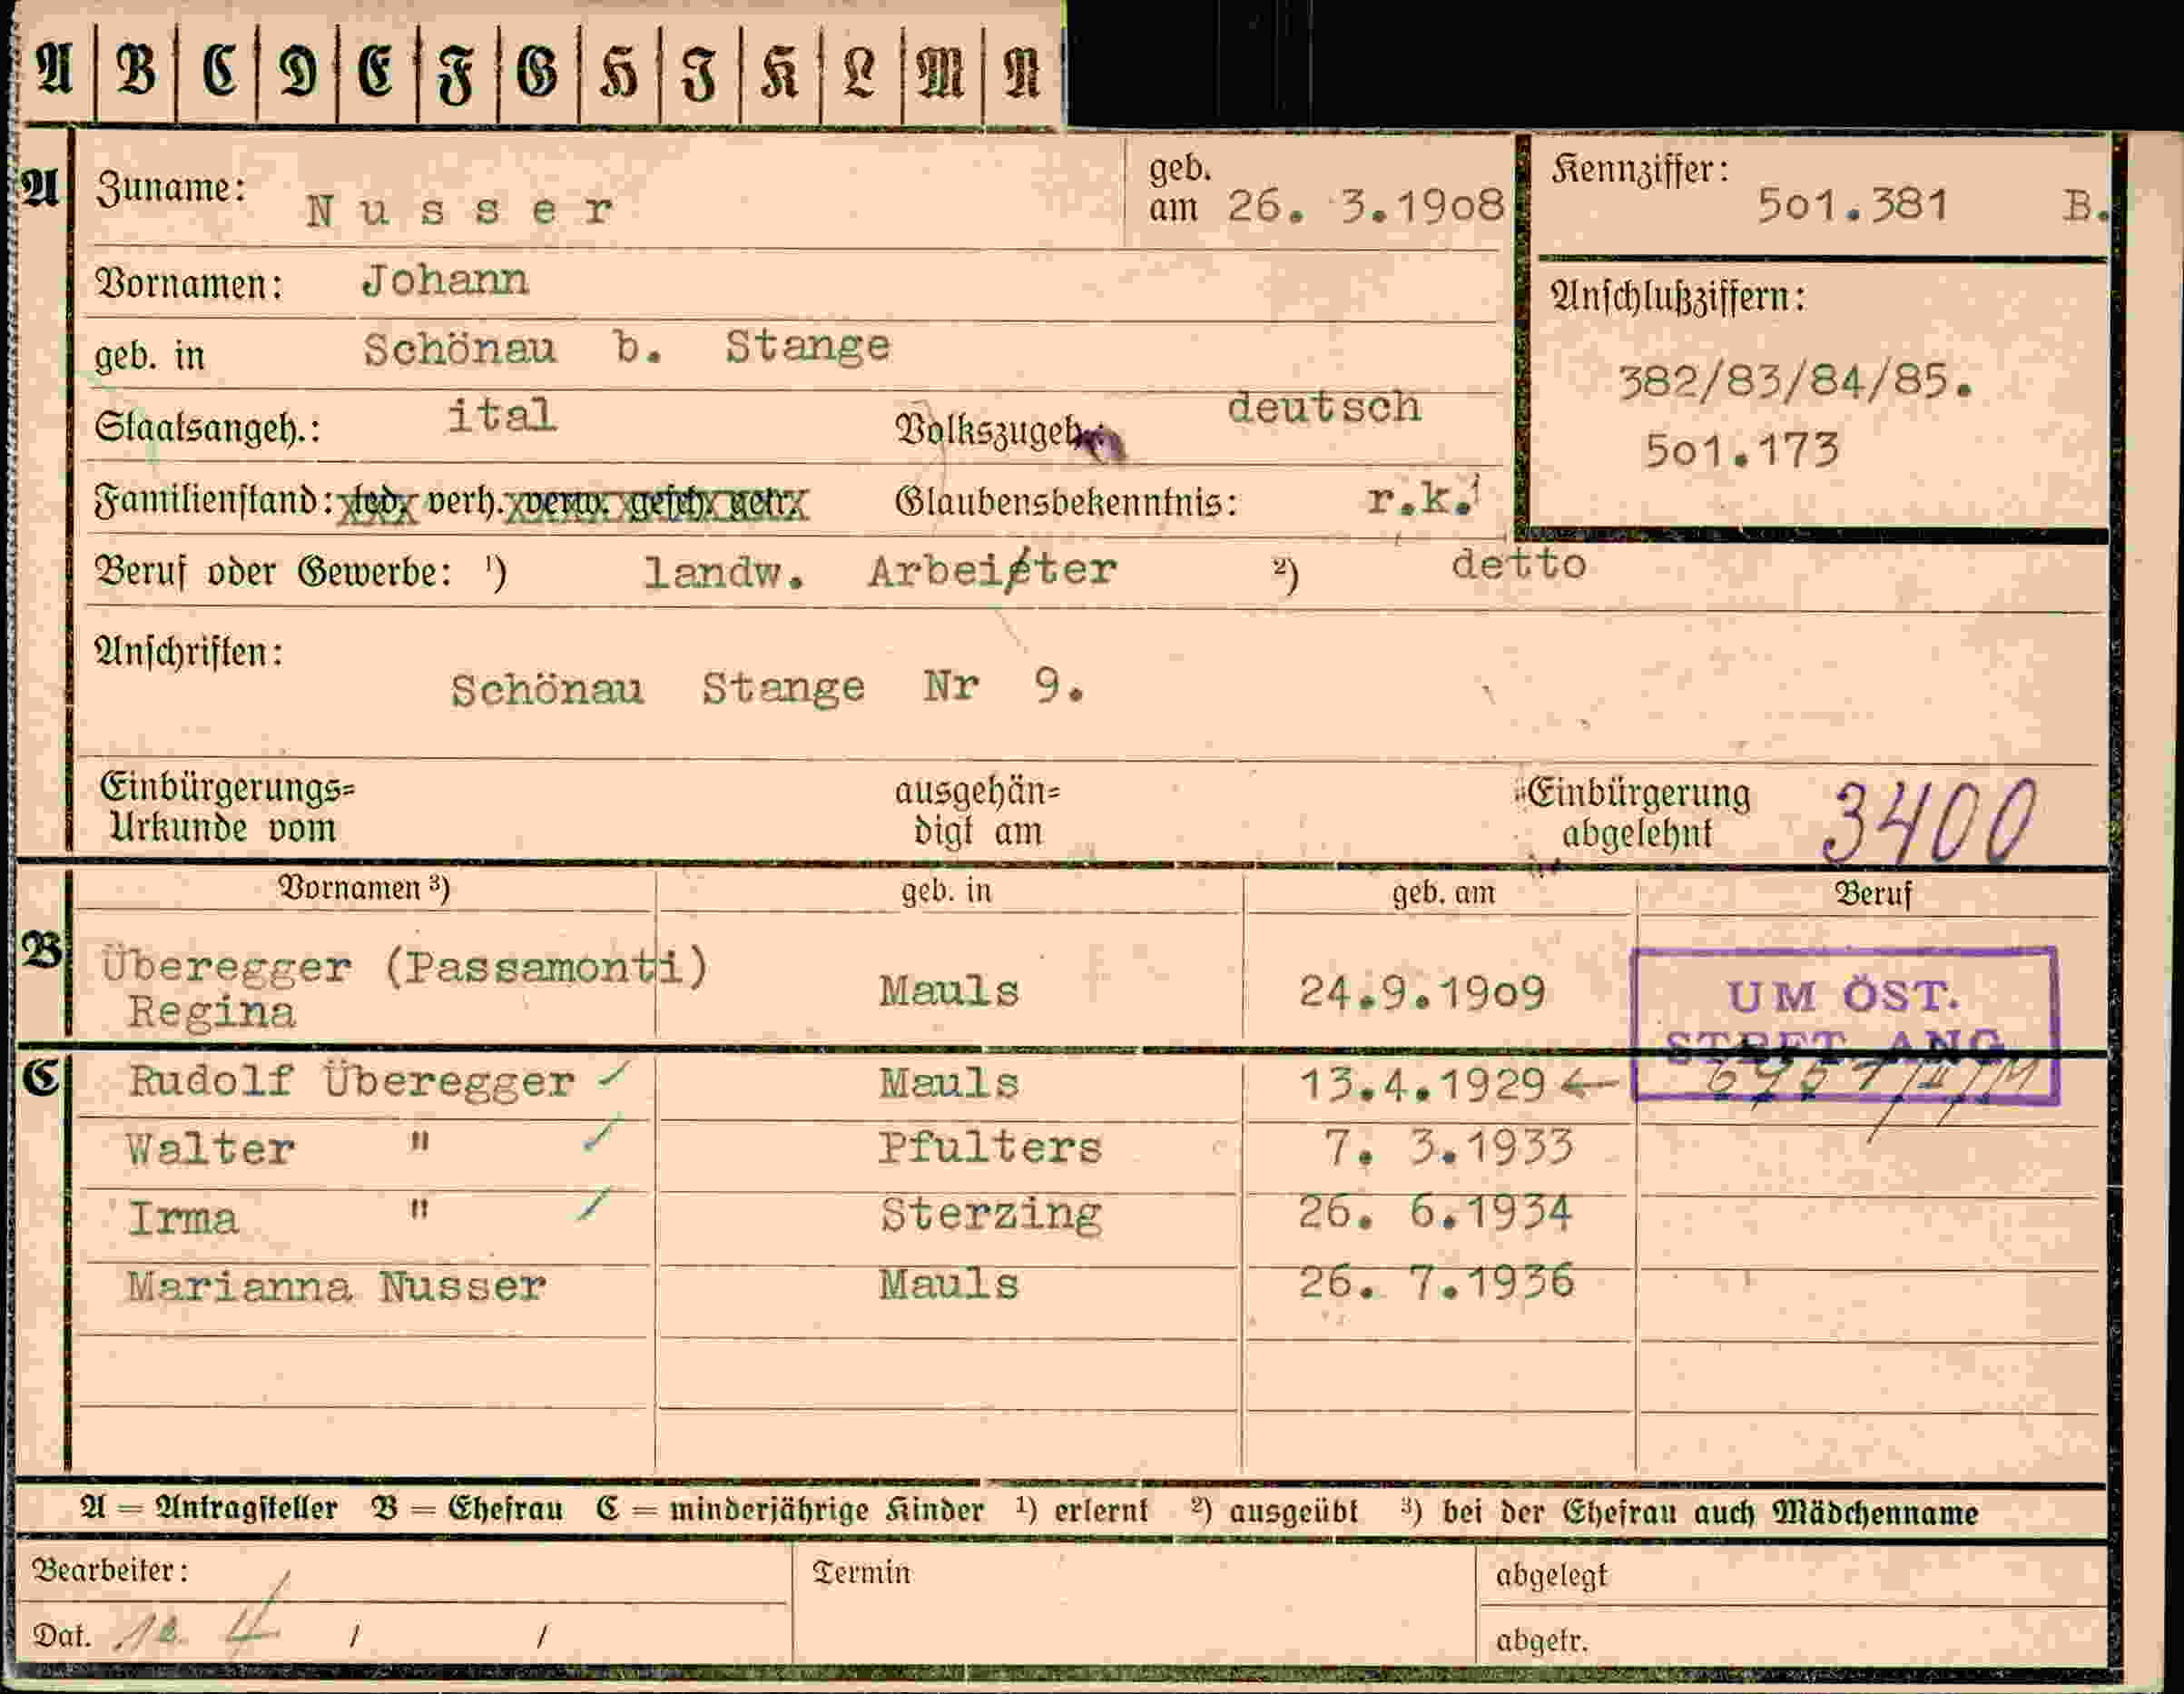 A B C D E F G H J K L M N
A
Zuname: Nusser
geb. am 26. 3.1908
Kennziffer: 501.381 B.
Vornamen: Johann
Anschlußziffern:
382/83/84/85.
501.173
geb. in Schönau b. Stange
Staatsangeh.: ital Volkszugeh.: deutsch
Familienstand: led. verh. verw. gesch. getr. Glaubensbekenntnis: r.k.
Beruf oder Gewerbe: ¹) landw. Arbeiter ²) detto
Anschriften:
Schönau Stange Nr 9.
Einbürgerungs=
Urkunde vom
ausgehän=
digt am
Einbürgerung
abgelehnt
3400
Vornamen ³) geb. in geb. am Beruf
B
Überegger (Passamonti)
Regina
Mauls 24.9.1909
UM ÖST.
C
Rudolf Überegger Mauls 13.4.1929
Walter " Pfulters 7. 3.1933
Irma " Sterzing 26. 6.1934
Marianna Nusser Mauls 26. 7.1936
A = Antragsteller B = Ehefrau C = minderjährige Kinder ¹) erlernt ²) ausgeübt ³) bei der Ehefrau auch Mädchenname
Bearbeiter: Termin abgelegt
Dat. / / abgetr.